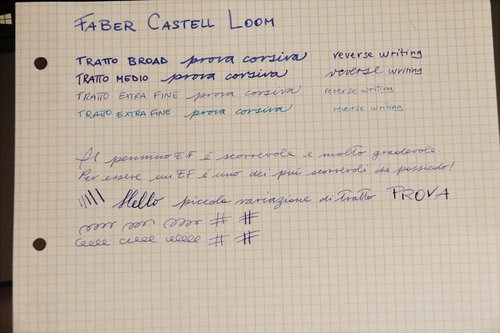 FABER CASTELL LOOM
TRATTO BROAD prova corsiva reverse writing
TRATTO MEDIO prova corsiva reverse writing
TRATTO EXTRA FINE prova corsiva reverse writing
TRATTO EXTRA FINE prova corsiva reverse writing
Il pennino EF è scorrevole e molto gradevole.
Per essere un EF è uno dei più scorrevoli che possiedo!
Hello piccola variazione di tratto PROVA
# #
# #